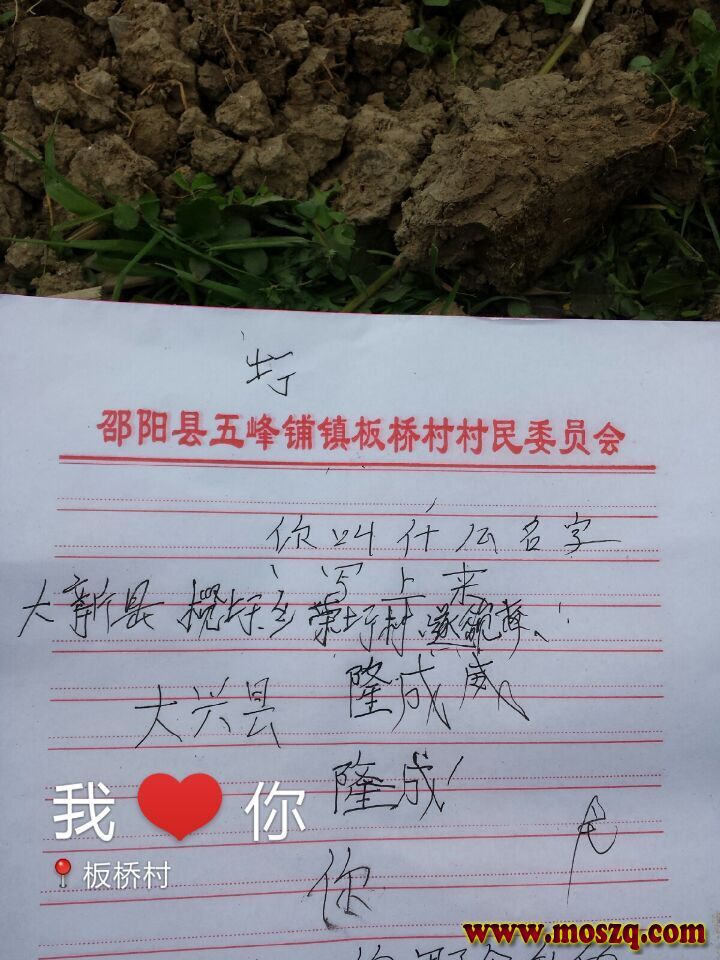 邵阳县五峰铺镇板桥村村民委员会
你叫什么名字
写上来
大新县 榄圩乡 荣圩村
大兴县 隆成威
隆成
我❤你
板桥村
你
www.moszq.com